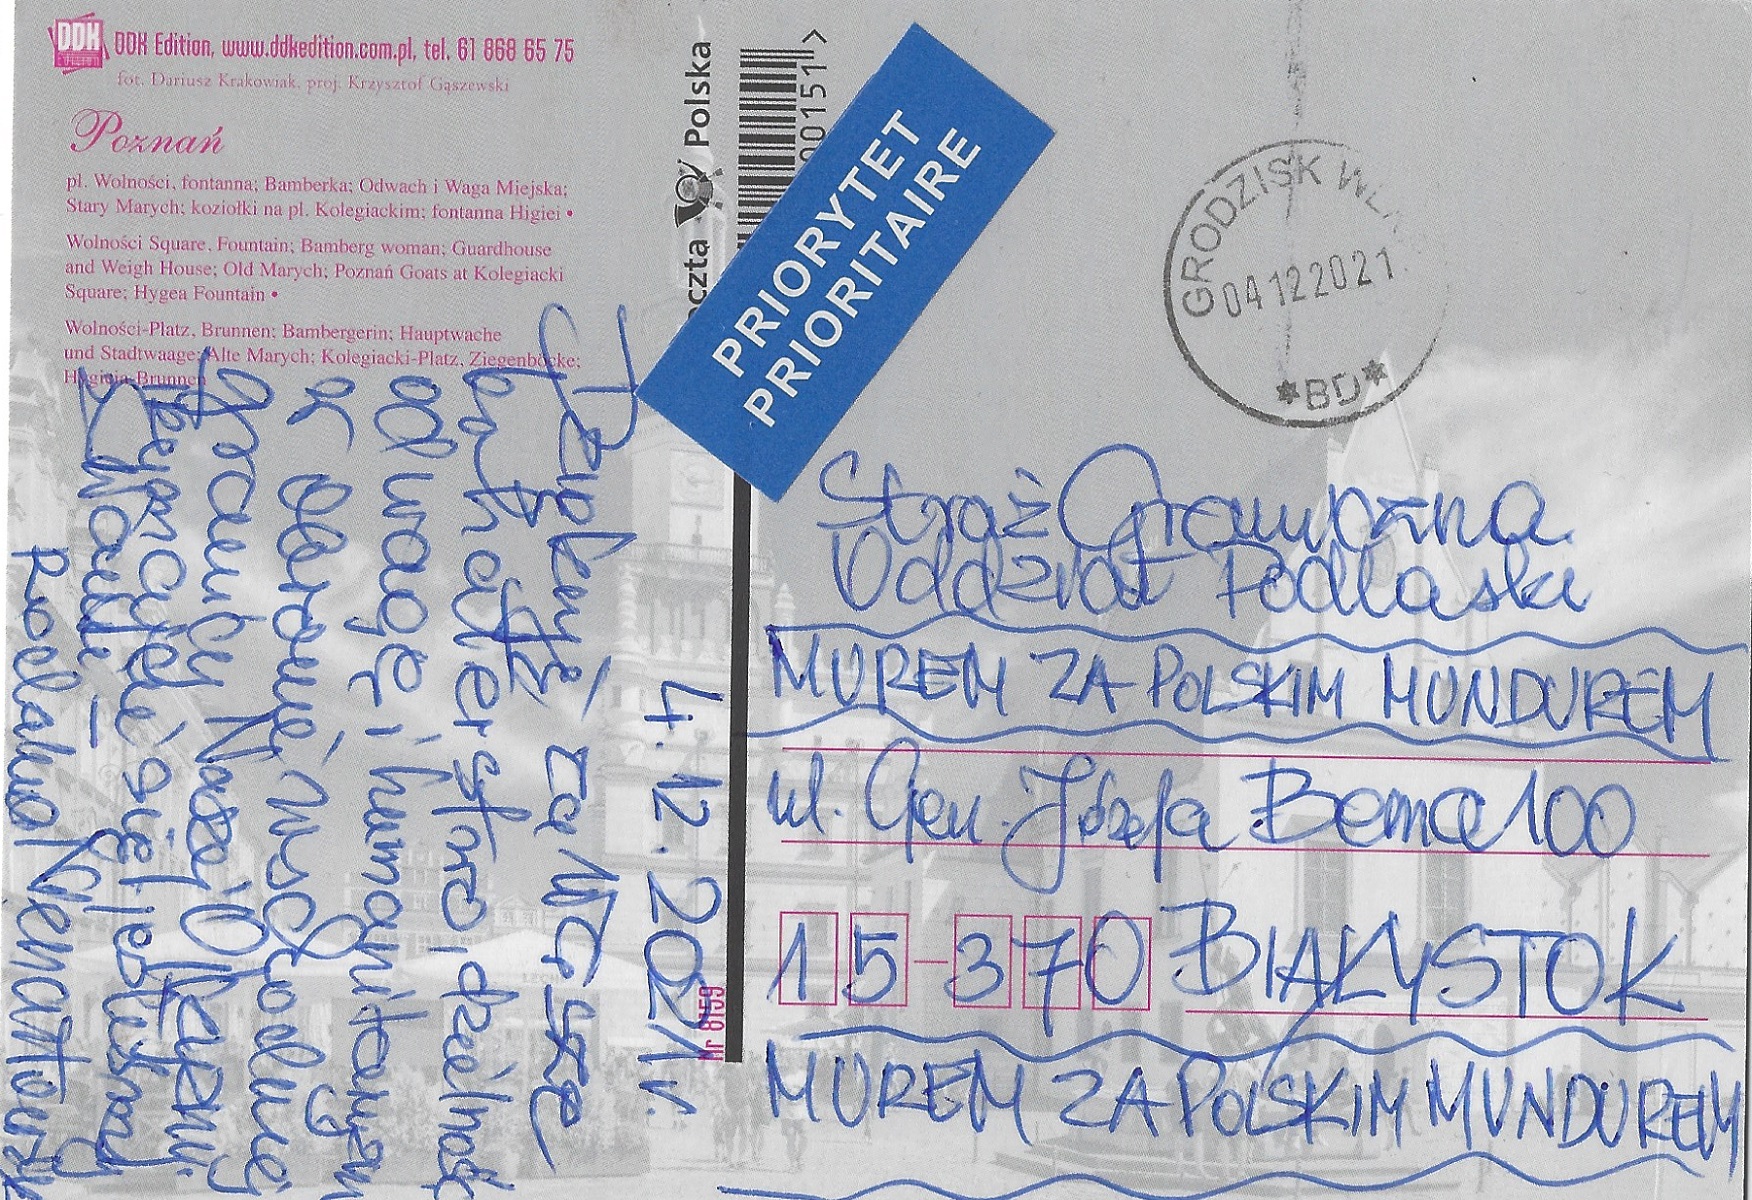 DDK Edition, www.ddkedition.com.pl, tel. 61 868 65 75
fot. Dariusz Krakowiak, proj. Krzysztof Gąszewski
Poznań
pl. Wolności, fontanna; Bamberka; Odwach i Waga Miejska;
Stary Marych; koziołki na pl. Kolegiackim; fontanna Higiei •
Wolności Square, Fountain; Bamberg woman; Guardhouse
and Weigh House; Old Marych; Poznań Goats at Kolegiacki
Square; Hygea Fountain •
Wolności-Platz, Brunnen; Bambergerin; Hauptwache
und Stadtwaage; Alte Marych; Kolegiacki-Platz, Ziegenböcke;
Hygieia-Brunnen
4.12.2021r.
Dziękuję za Wasze
bohaterstwo, dzielność
odwagę i humanitaryzm
w obronie Wschodniej
Granicy Naszej Ojczyzny.
Trzymajcie się, jesteśmy
z Wami –
Nr 8159
Poczta Polska
00151
PRIORYTET
PRIORITAIRE
GRODZISK WLKP
04122021
*BD*
Straż Graniczna
Oddział Podlaski
MUREM ZA POLSKIM MUNDUREM
ul. Gen. Józefa Bema 100
15-370 BIAŁYSTOK
MUREM ZA POLSKIM MUNDUREM